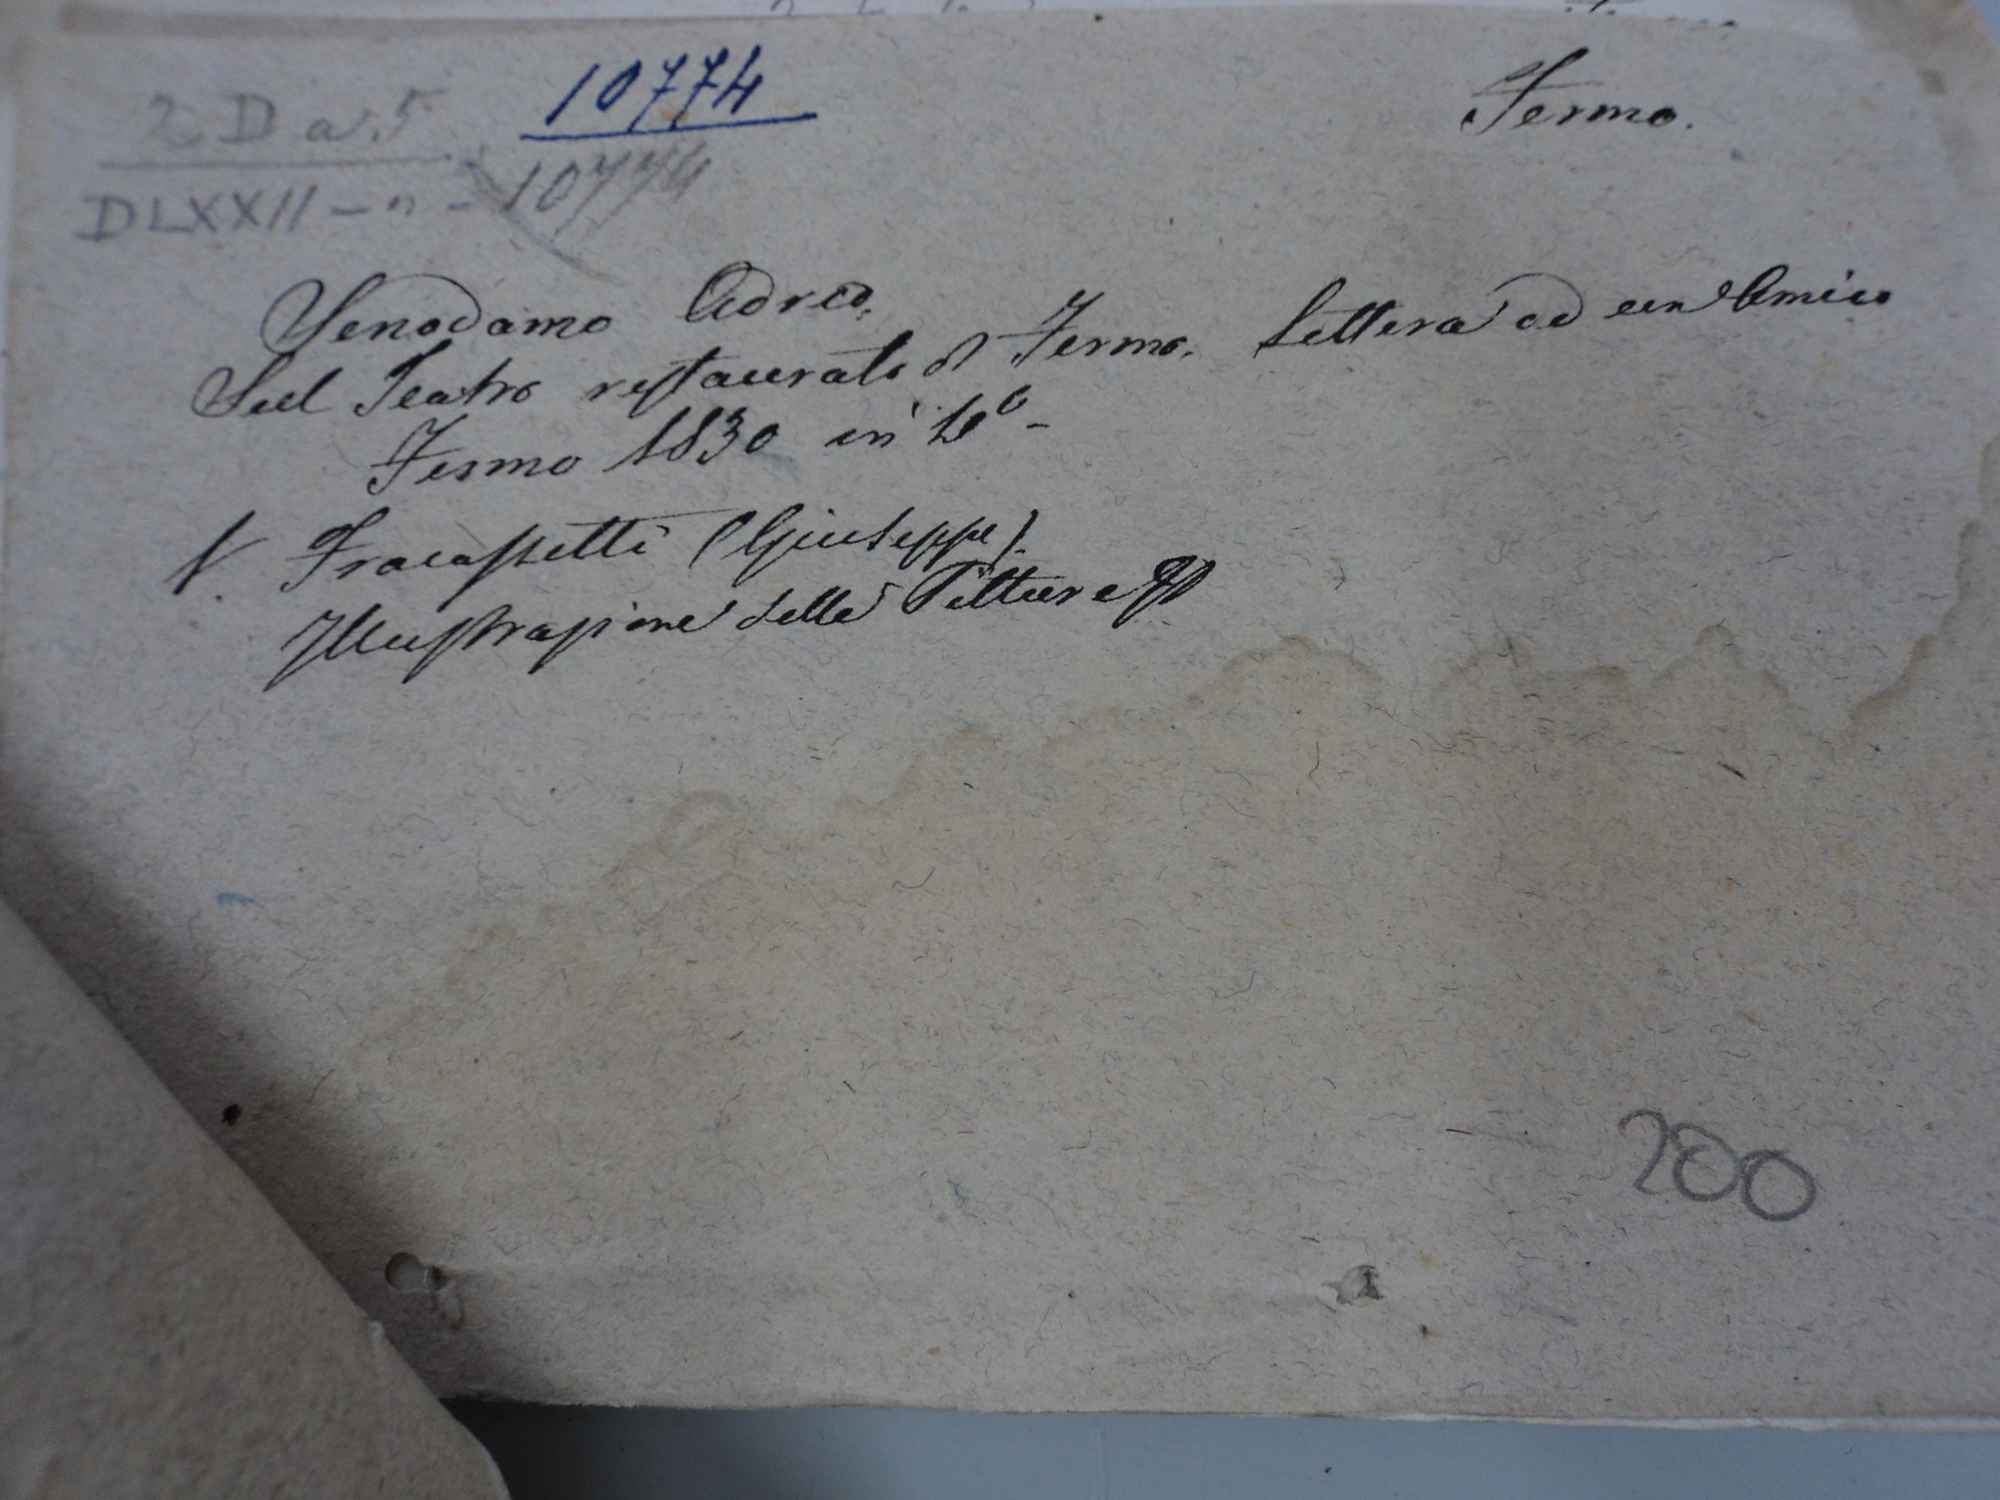 2 D a. 5
10774
Fermo.
DLXXII - n - 10774
Venodamo Adreo.
Sul Teatro restaurato di Fermo. Lettera ad un Amico
Fermo 1830 in 4º -
V. Fracassetti (Giuseppe).
Illustrazione delle Pitture
200